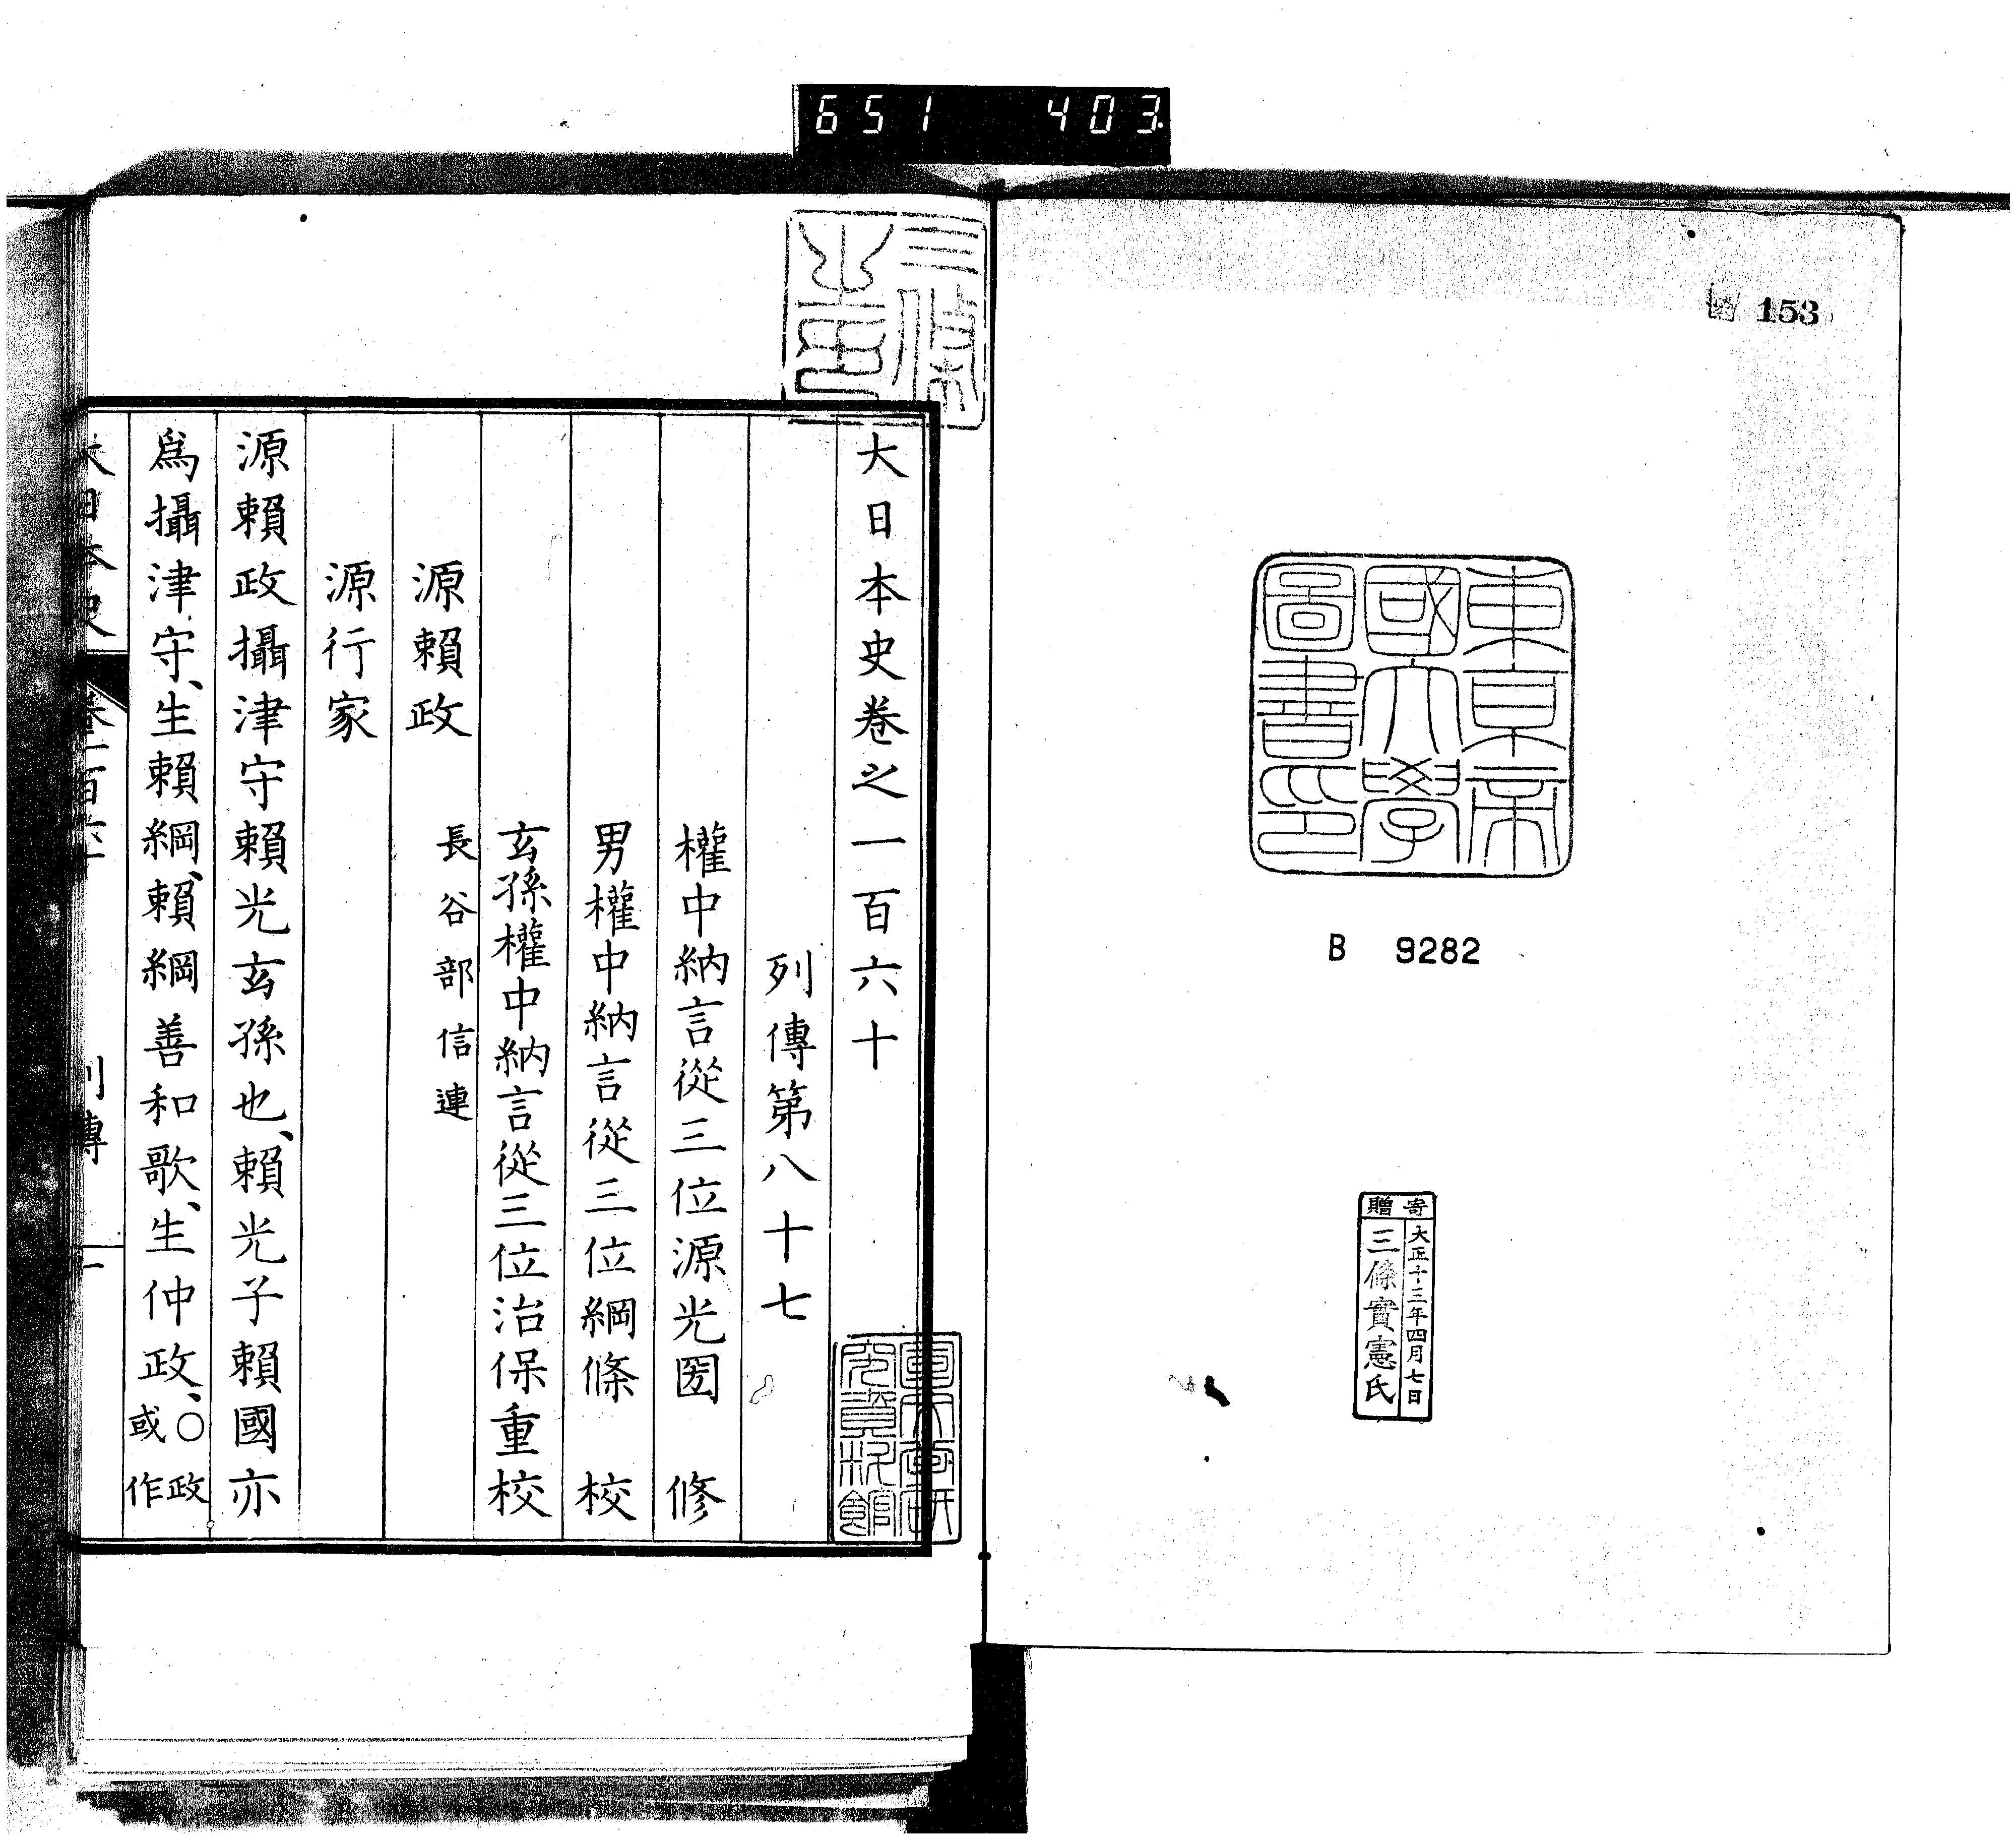 651 403
153
東京帝
國大學
圖書印
B 9282
寄贈
大正十三年四月七日
三條實憲氏
三條
之印
大日本史卷之一百六十
列傳第八十七
權中納言從三位源光圀 修
男權中納言從三位綱條 校
玄孫權中納言從三位治保重校
源賴政 長谷部信連
源行家
源賴政攝津守賴光玄孫也、賴光子賴國亦
爲攝津守、生賴綱、賴綱善和歌、生仲政、○政
或作
大日本史 列傳